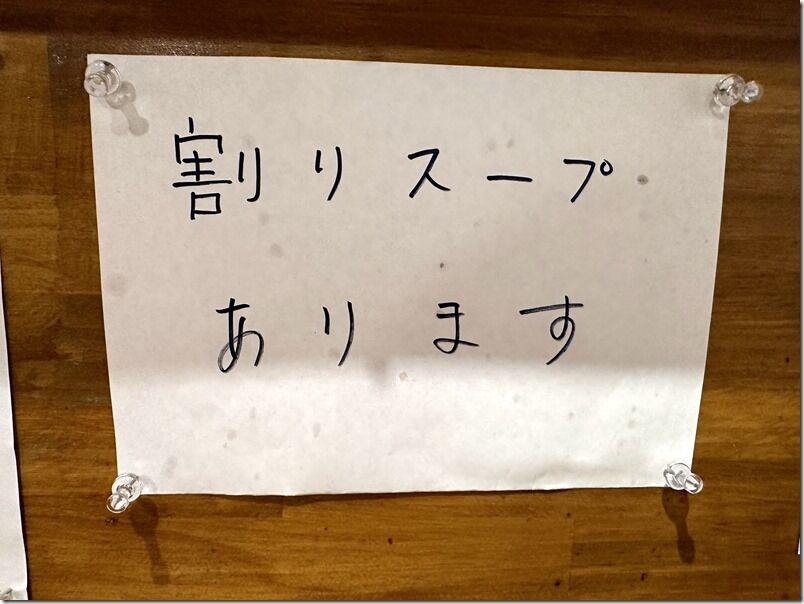 割りスープ
あります